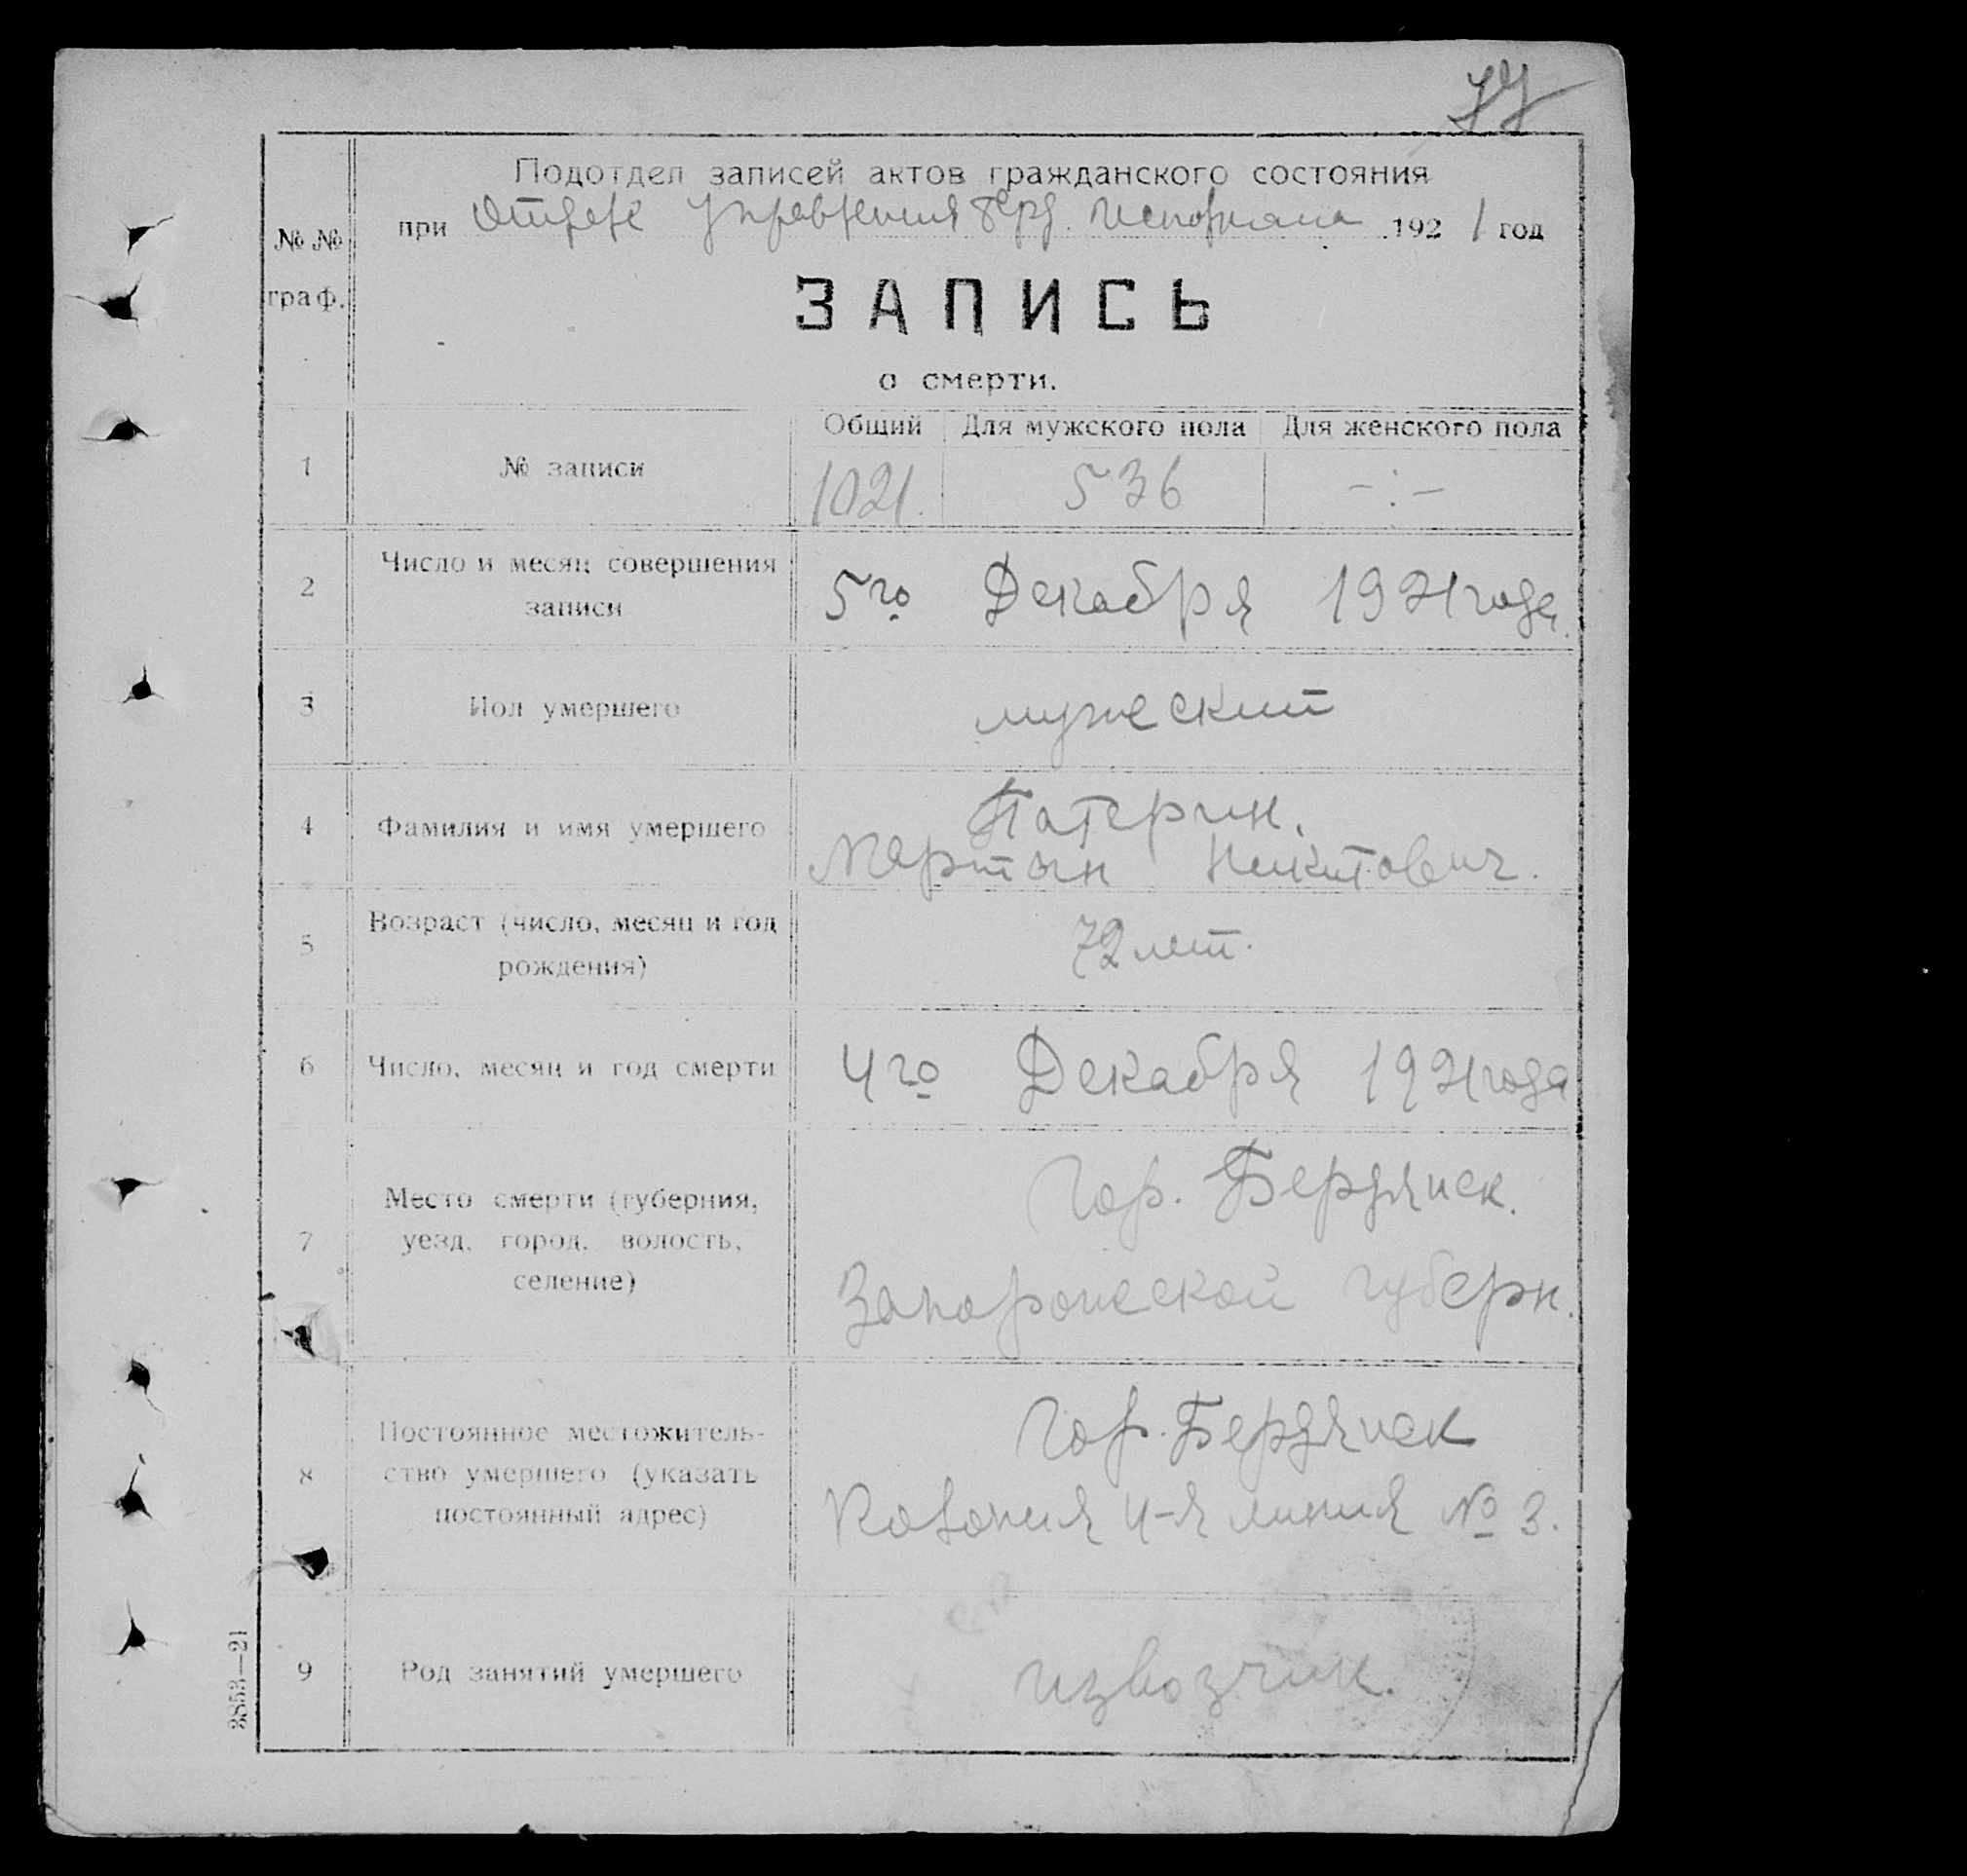 77
Подотдел записей актов гражданского состояния
при Отделе Управления Берд. Исполкома 1921 год
№№ граф.
ЗАПИСЬ
о смерти.
Общий Для мужского пола Для женского пола
1 № записи 1021. 536 -:-
2 Число и месяц совершения записи 5го Декабря 1921 года.
3 Пол умершего мужеский
4 Фамилия и имя умершего Патерин.
Мартын Никитович.
5 Возраст (число, месяц и год рождения) 72 лет.
6 Число, месяц и год смерти 4го Декабря 1921 года
7 Место смерти (губерния, уезд, город, волость, селение) Гор. Бердянск.
Запорожеской губерн.
8 Постоянное местожительство умершего (указать постоянный адрес) Гор. Бердянск
Колония 4-я линия № 3.
9 Род занятий умершего извозчик.
3853—21